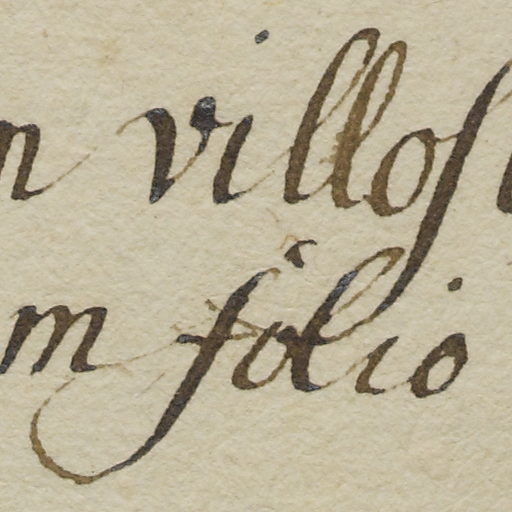 n villoſ
m folio